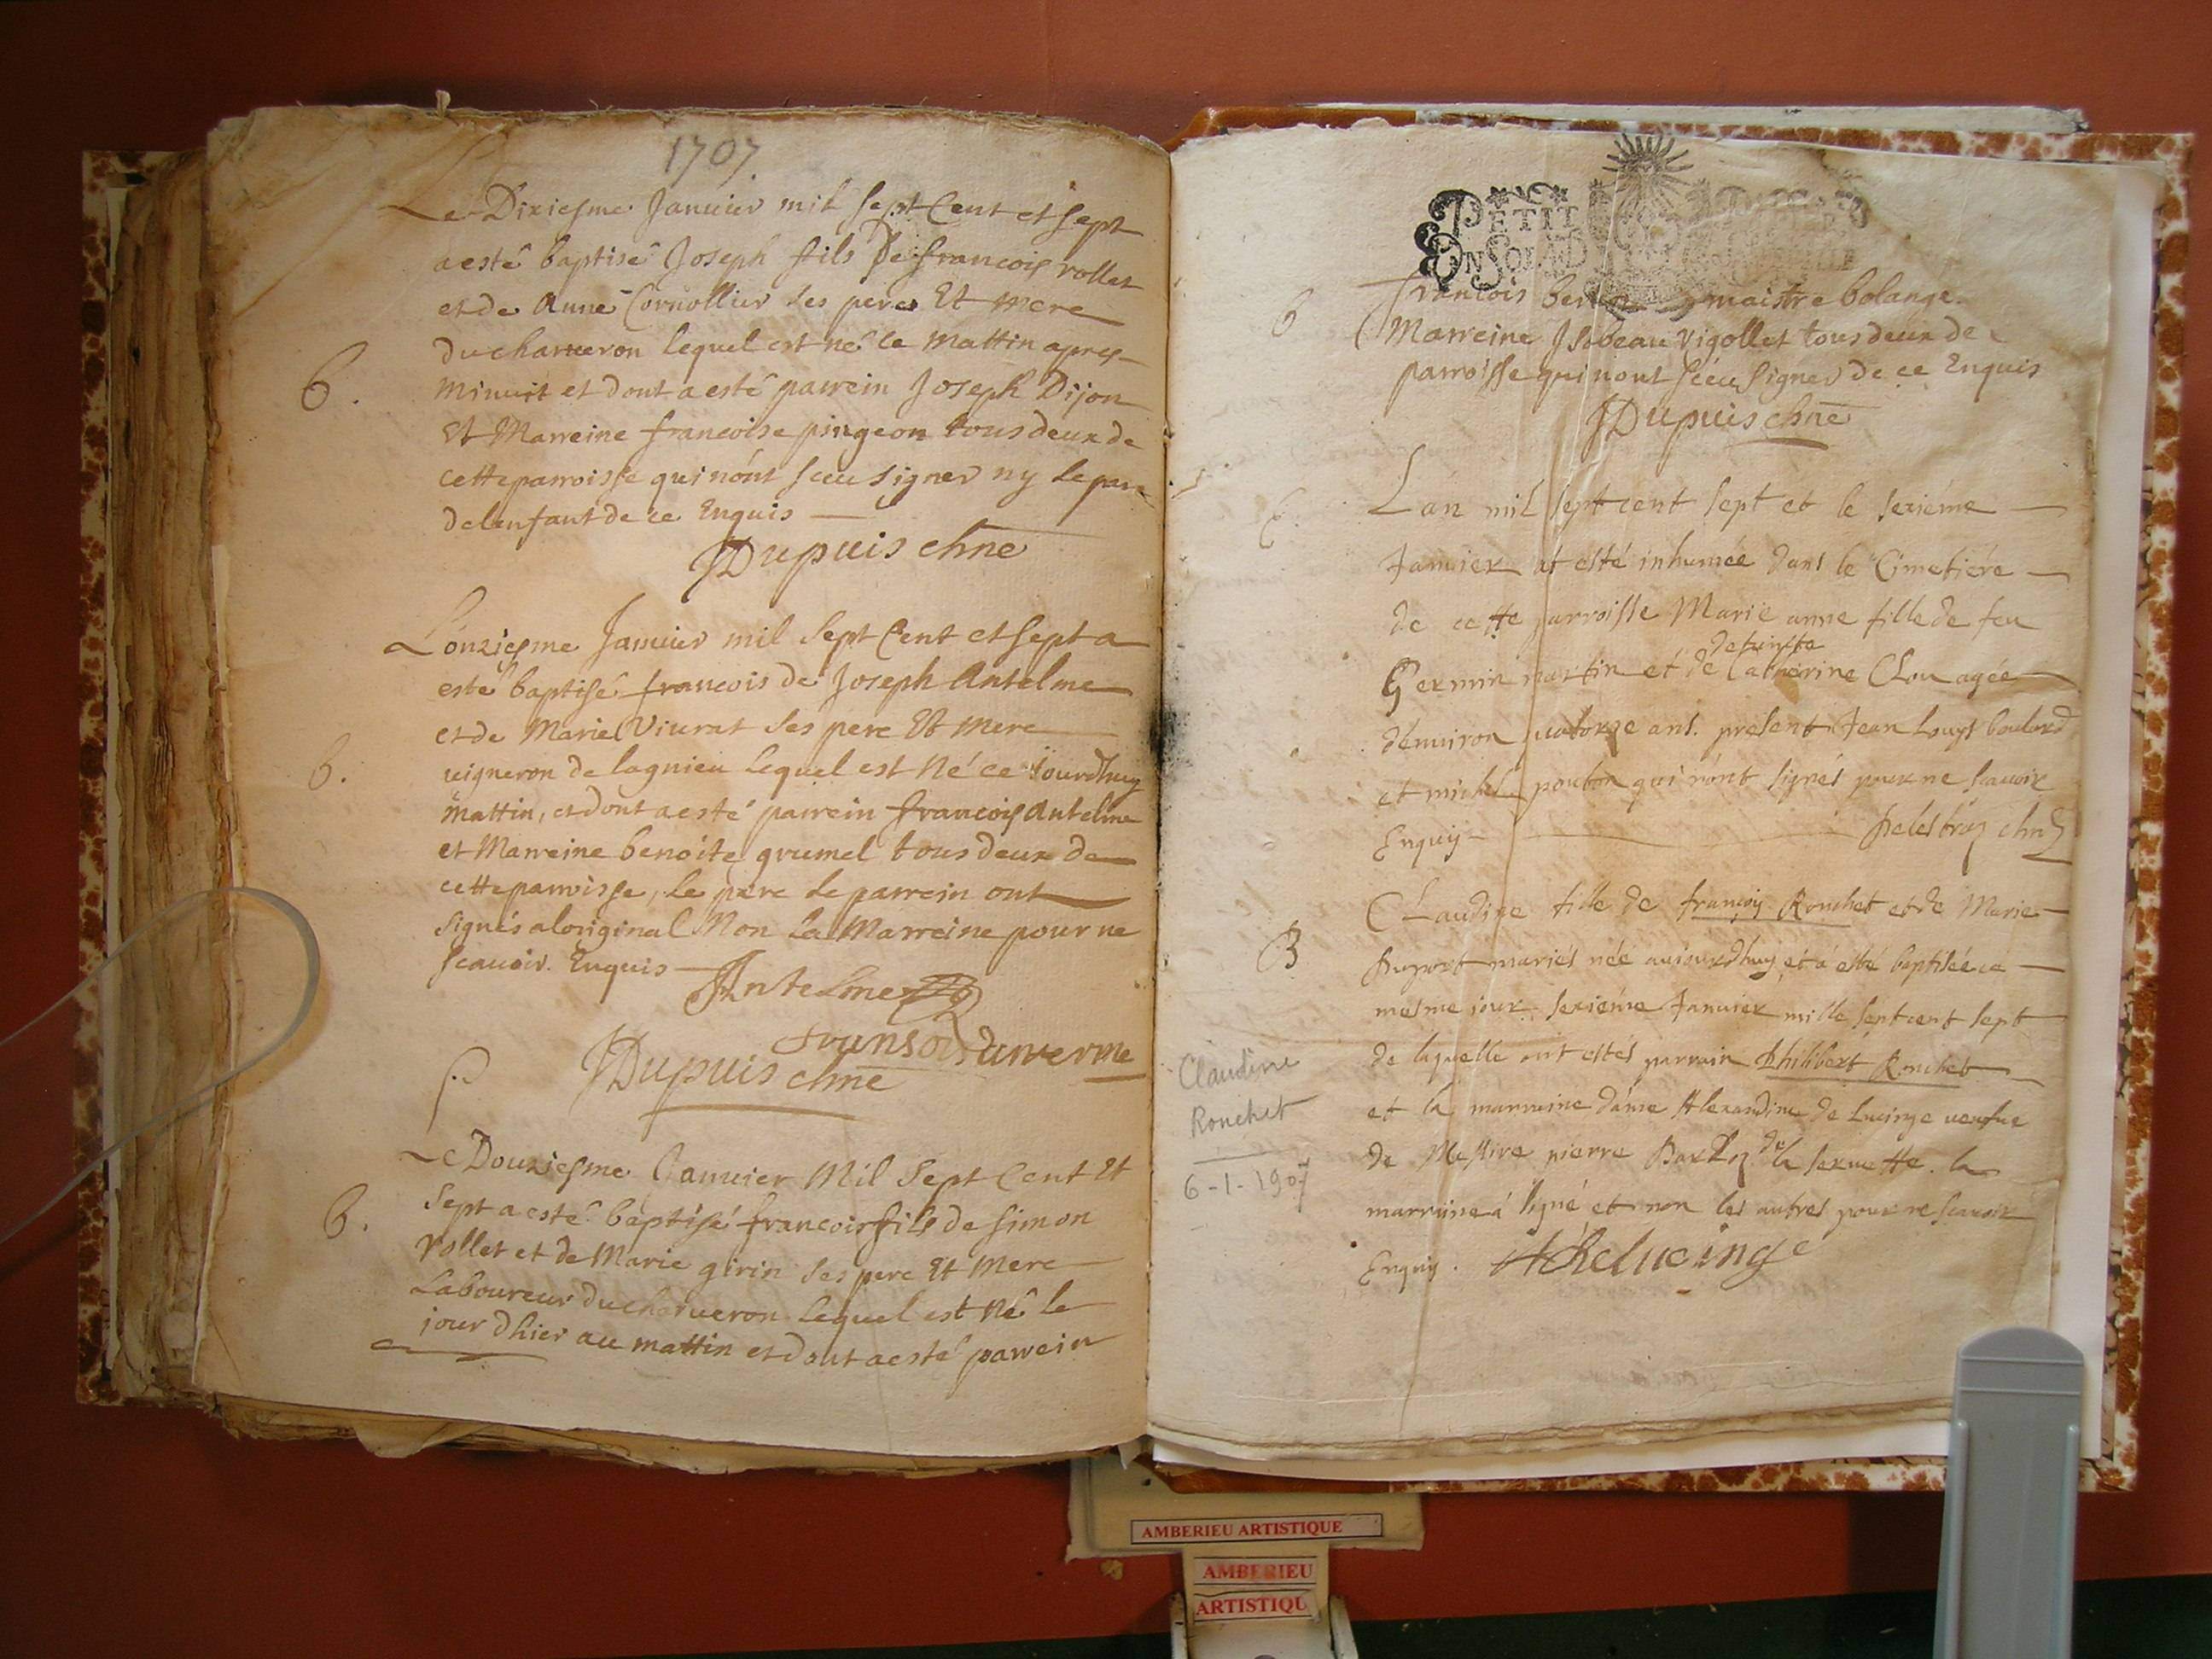 1707
Le Diziesme Janvier mil sept Cent et sept
a esté baptisé Joseph fils De francois rollet
et de Anne Cornollier ses peres Et mere
du charveron lequel est né ce mattin apres
B.
minuit et dont a esté parrein Joseph Dijon
Et Marreine francoise pingeon tous deux de
cette parroisse qui n'ont sceu signer ny le pere
de lenfant de ce Enquis
JDupuis chne
L'onziesme Janvier mil sept Cent et sept a
esté baptisé francois de Joseph Antelme
et de Marie Viurat ses pere Et mere
B.
vigneron de lagnieu lequel est Né ce jourdhuy
mattin, et dont a esté parrein francois Antelme
et Marreine benoite grumel tous deux de
cette parroisse, le pere le parrein ont
signés a loriginal Non La Marreine pour ne
scavoir. Enquis
Antelme
JDupuis chne
Le Douziesme Janvier Mil Sept Cent Et
B.
Sept a esté baptisé francois fils de Simon
rollet et de Marie girin ses pere Et Mere
Laboureur du charveron lequel est Né le
jour dhier au mattin et dont a esté parrein
PETIT
EN SOLAD
B
francois maistre bolange.
Marreine Isabeau Vigollet tous deux de
parroisse qui n'ont sceu signer de ce Enquis
JDupuis chne
Lan mil sept cent sept et le sezième
Janvier at esté inhumée dans le Cimetière
de cette parroisse Marie anne fille de feu
defuncte
Germin martin et de Catherine Clou agée
denuiron quatorze ans. present Jean Louys boulard
et michel ponbon qui n'ont signés pour ne scavoir
Enquis
B
Claudine fille de françois Ronchet et de Marie
Duport mariés née aujourdhuy et a esté baptisée ce
mesme jour sezième Janvier mille sept cent sept
de laquelle ont estés parrain Philibert Ronchet
et la marraine dame Alexandine de Lucinge veufve
de Messire pierre de la sernette. la
marraine a signé et non les autres pour ne scavoir
Enquis. ADelucinge
Claudine
Ronchet
6-1-1907
AMBERIEU ARTISTIQUE
AMBERIEU
ARTISTIQU